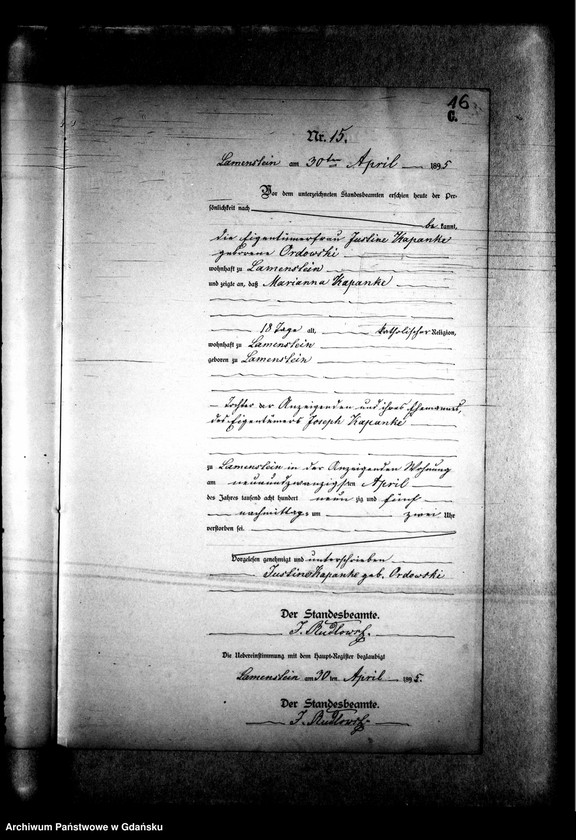 16
C.
Nr. 15.
Lamenstein am 30ten April 1895
Vor dem unterzeichneten Standesbeamten erschien heute der Per-
sönlichkeit nach
be kannt,
die Eigentümerfrau Justine Kapanke
geborene Ordowski
wohnhaft zu Lamenstein
und zeigte an, daß Marianna Kapanke
18 Tage alt, katholischer Religion,
wohnhaft zu Lamenstein
geboren zu Lamenstein
Tochter der Anzeigenden und ihres Ehemannes,
des Eigentümers Joseph Kapanke
zu Lamenstein in der Anzeigenden Wohnung
am neunundzwanzigsten April
des Jahres tausend acht hundert neun zig und fünf
nachmittags um zwei Uhr
verstorben sei.
Vorgelesen, genehmigt und unterschrieben
Justine Kapanke geb. Ordowski
Der Standesbeamte.
Die Uebereinstimmung mit dem Haupt-Register beglaubigt
Lamenstein am 30ten April 1895.
Der Standesbeamte.
Archiwum Państwowe w Gdańsku